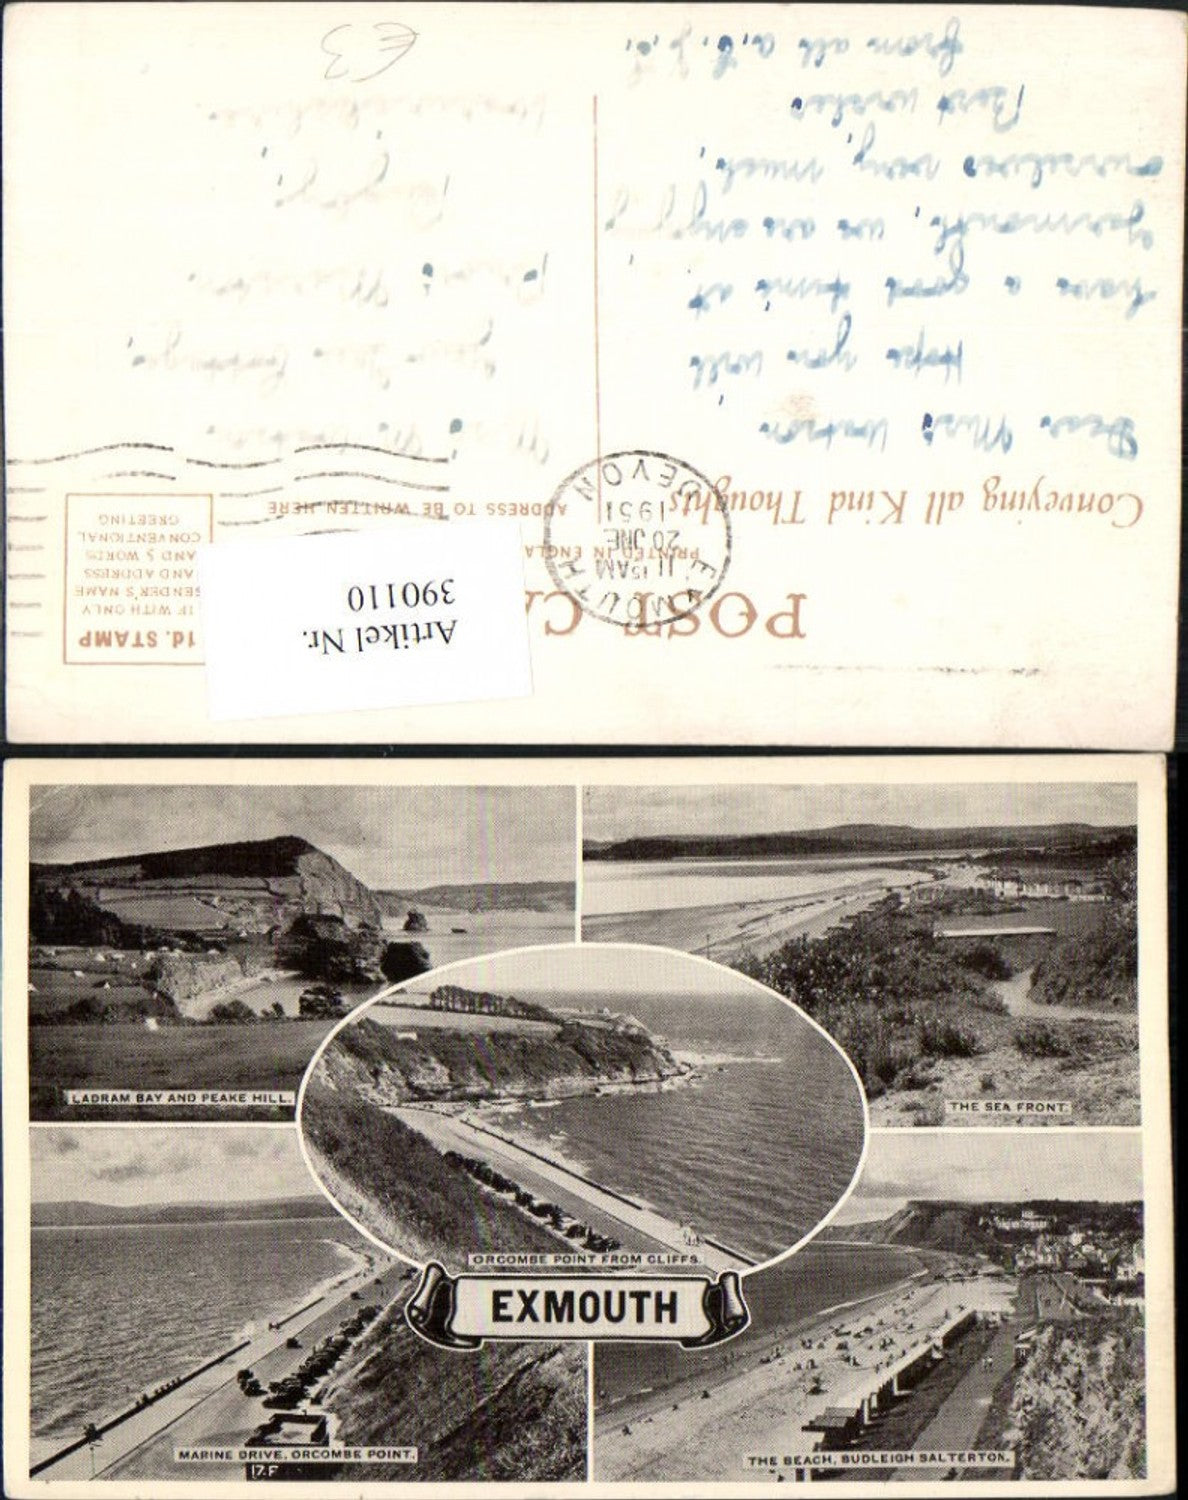 POST CA
PRINTED IN ENGLA
Conveying all Kind Thoughts
ADDRESS TO BE WRITTEN HERE
1d. STAMP
IF WITH ONLY
SENDER'S NAME
AND ADDRESS
AND 5 WORDS
CONVENTIONAL
GREETING
Artikel Nr.
390110
EXMOUTH
DEVON
11 15AM
20 JNE
1951
Dear Mrs. Watson
Hope you will
have a good time at
Yarmouth, we are enj
ourselves very, much.
Best wishes
from all
£3
LADRAM BAY AND PEAKE HILL.
THE SEA FRONT.
ORCOMBE POINT FROM CLIFFS.
EXMOUTH
MARINE DRIVE, ORCOMBE POINT.
17.F
THE BEACH, BUDLEIGH SALTERTON.